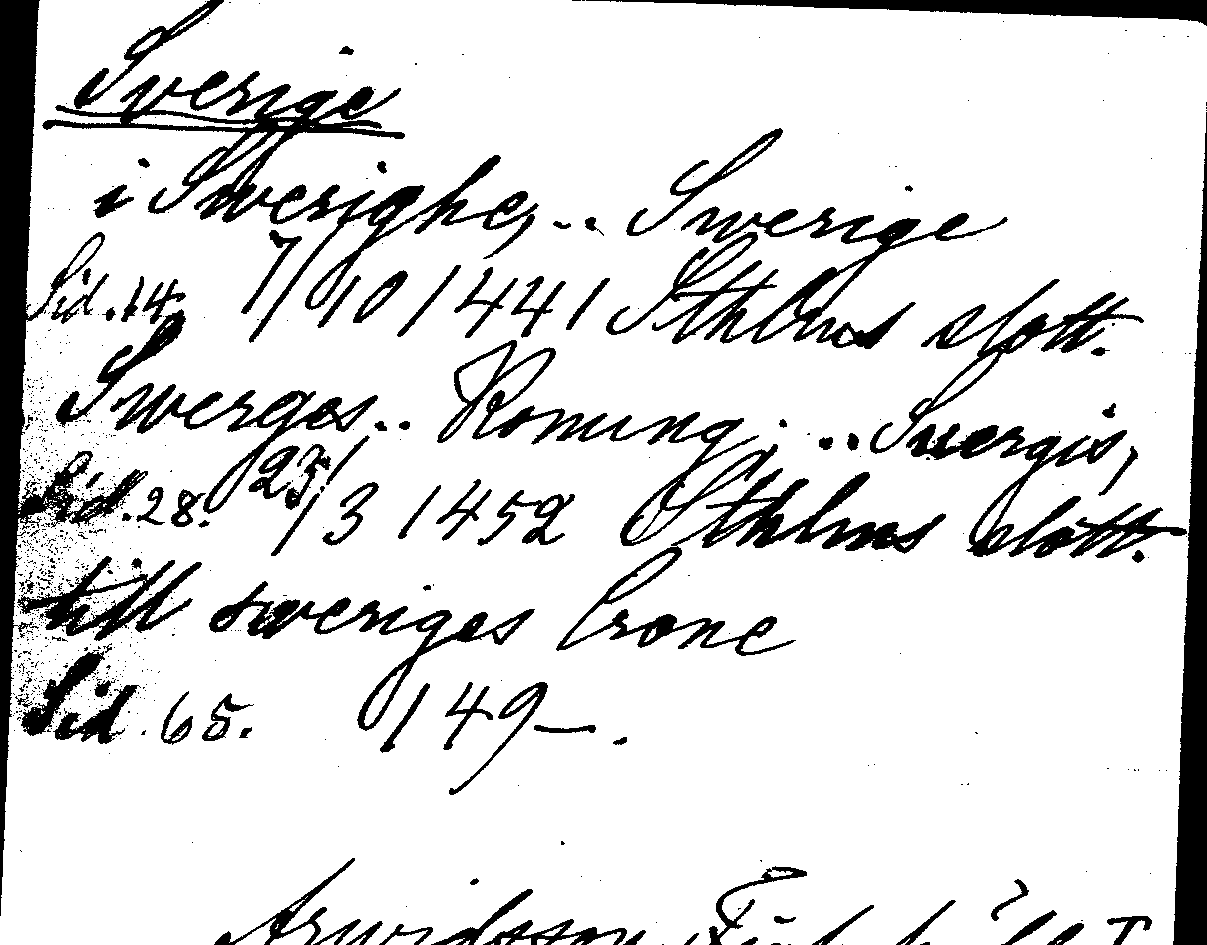 Sverige
i Swerighe, .. Swerige
Sid. 14. 7/10 1441 Sthlms slott.
Swerges .. Konung; .. Suergis,
Sid. 28. 23/3 1452 Sthlms slott.
till sweriges Crone
Sid. 65. 149-.
Arwidsson